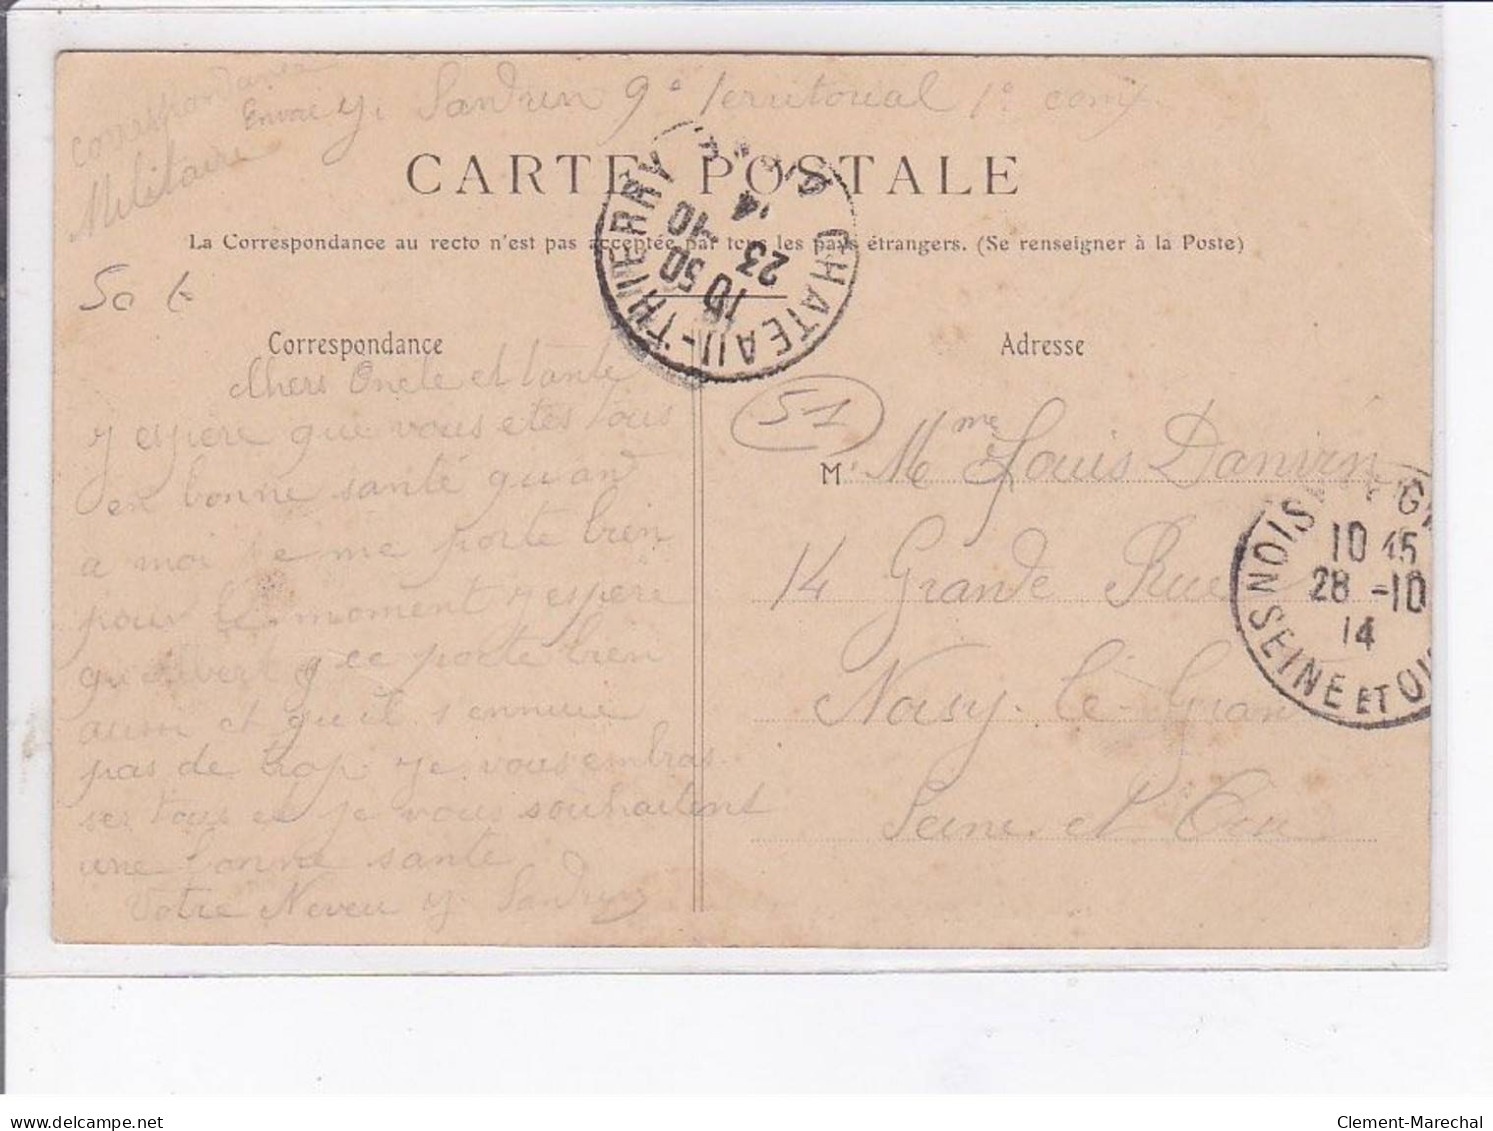 correspondance
Militaire
Envoi y. Sandrin 9e Territorial 1e comp
CARTE POSTALE
La Correspondance au recto n'est pas acceptée par tous les pays étrangers. (Se renseigner à la Poste)
CHATEAU-THIERRY
10 50
23 -10
14
50 t
Correspondance
Chers Oncle et tante
j espere que vous etes tous
en bonne santé quand
a moi je me porte bien
pour le moment j espere
qu albert ce porte bien
aussi et qu il s ennuie
pas de trop je vous embras
ser tous et je vous souhaitent
une bonne sante
Votre Neveu y. Sandrin
51
Adresse
M Mme Louis Danvin
14 Grande Rue
Noisy-le-Grand
Seine et Oise
NOISY
10 45
28 -10
14
SEINE ET OI
delcampe.net
Clement-Marechal